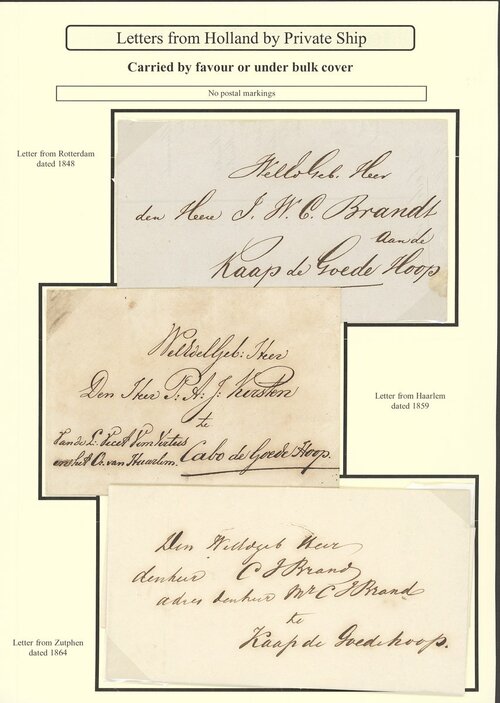 Letters from Holland by Private Ship
Carried by favour or under bulk cover
No postal markings
Letter from Rotterdam
dated 1848
WelEdGeb. Heer
den Heere J. W. C. Brandt
Aan de
Kaap de Goede Hoop
Letter from Haarlem
dated 1859
WelEdelGeb: Heer
Den Heer P: A: J: Kersten
te
Van de L:
en het Cr. van Haarlem. Cabo de Goede Hoop.
Den Weledgeb Heer
denheer C J Brand
adres denheer Mr C J Brand
te
Kaap de Goedehoop.
Letter from Zutphen
dated 1864